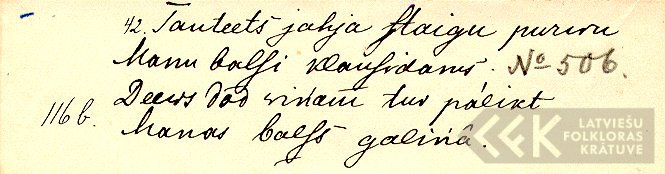 42. Tauteets jahja staigu purwu
Manu balsi klausidams. No 506.
116 b. Deews dod wiņam tur palikt
Manas balss galiņâ.
LATVIEŠU
FOLKLORAS
KRĀTUVE